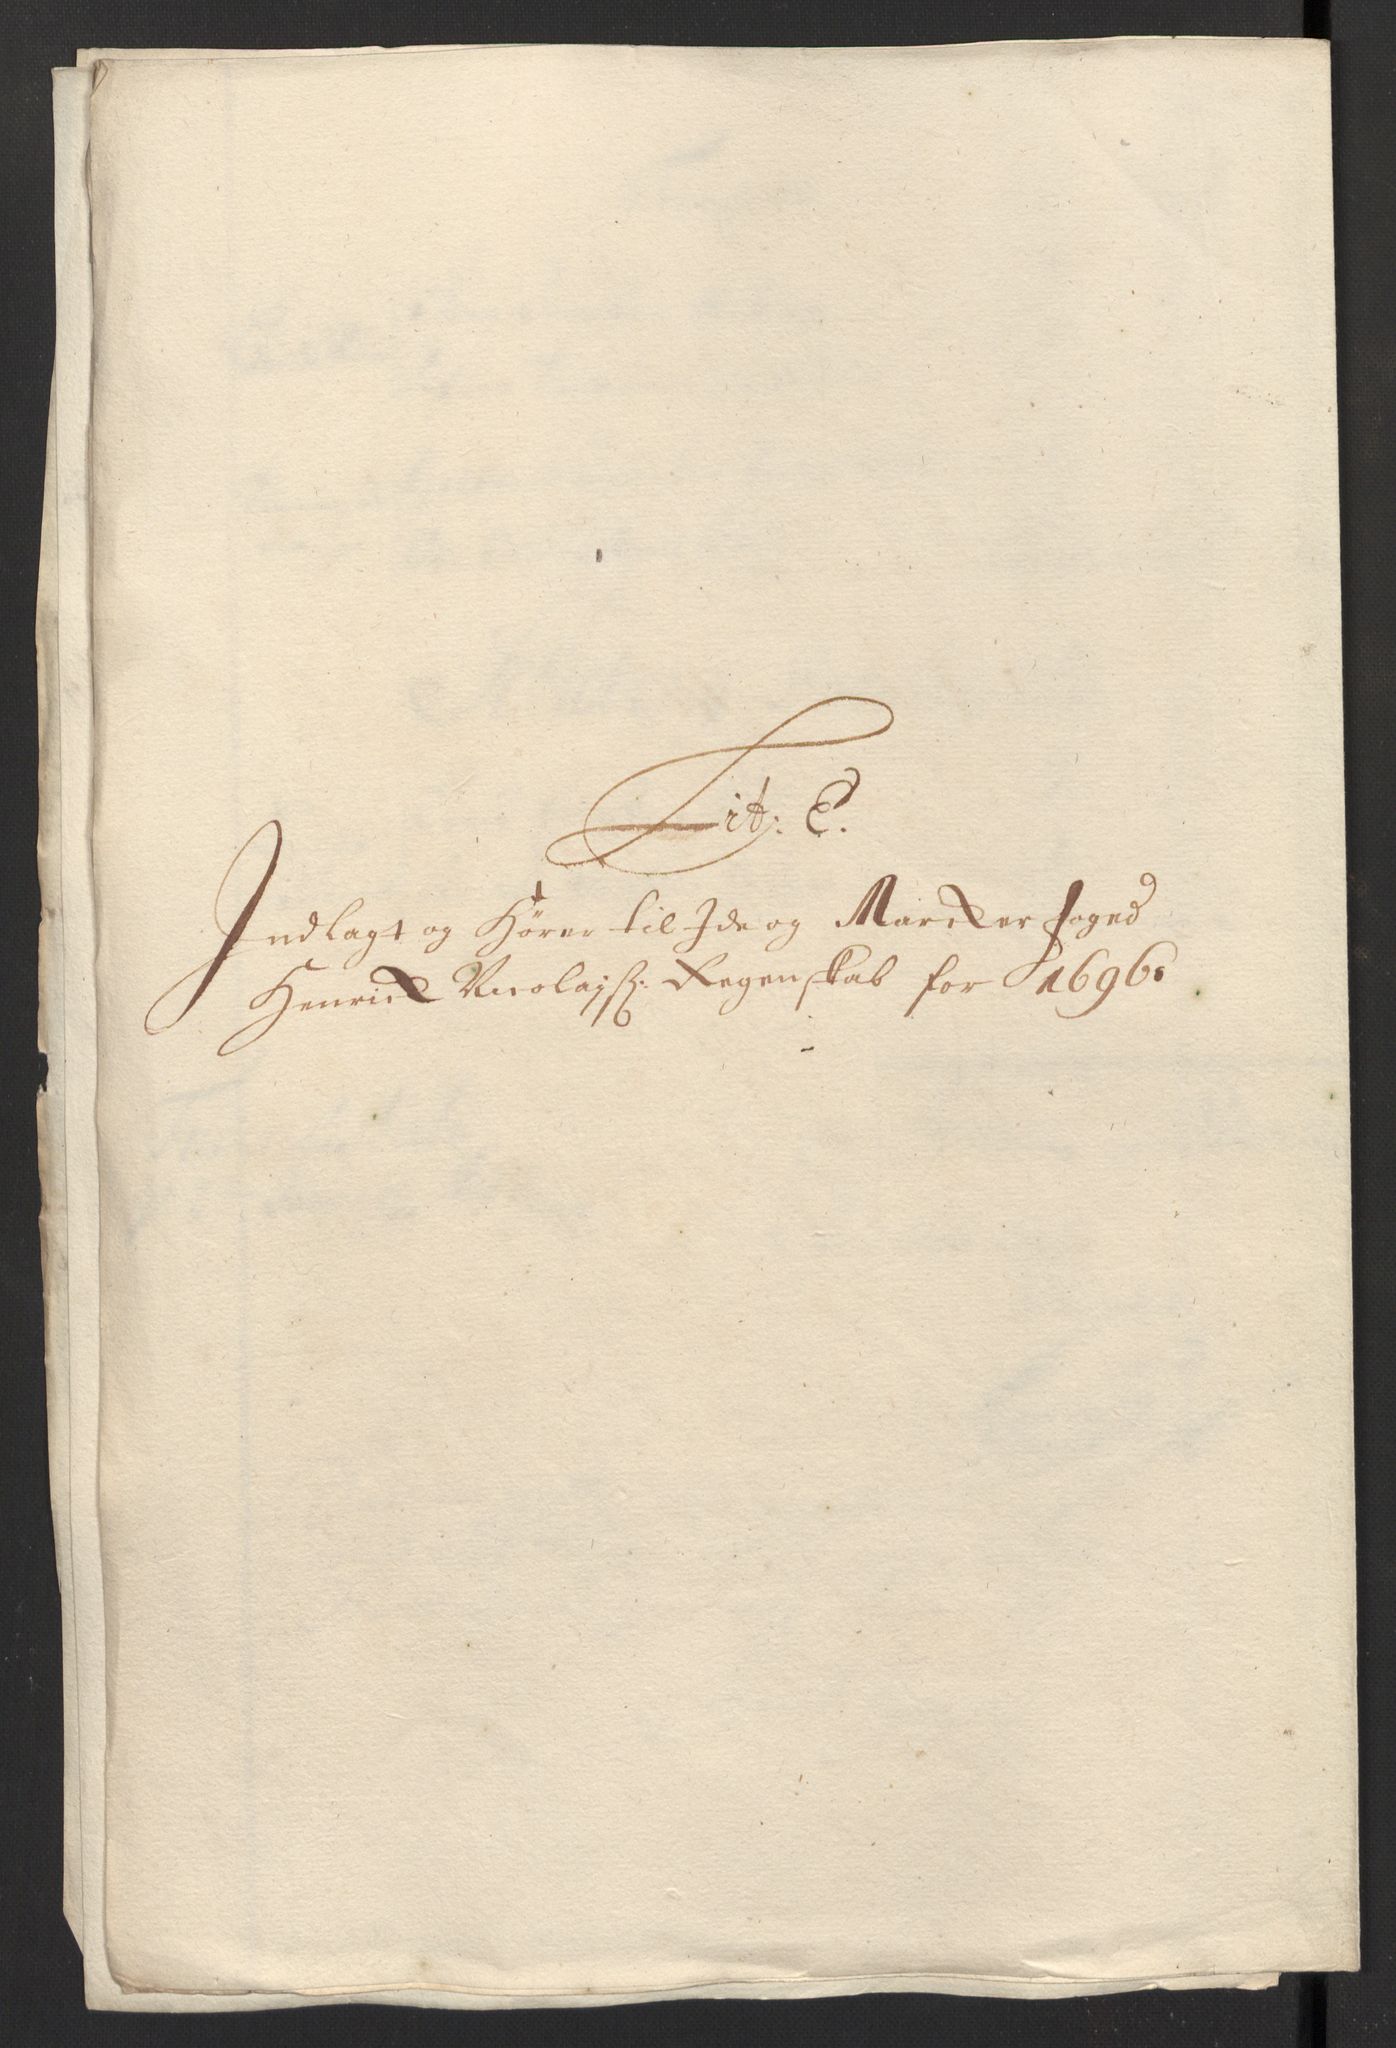 Lit: C.
Indlagt og Hörer til Ide og Marcker foged
Henrick Nicolajsß: Regenskab for 1696.